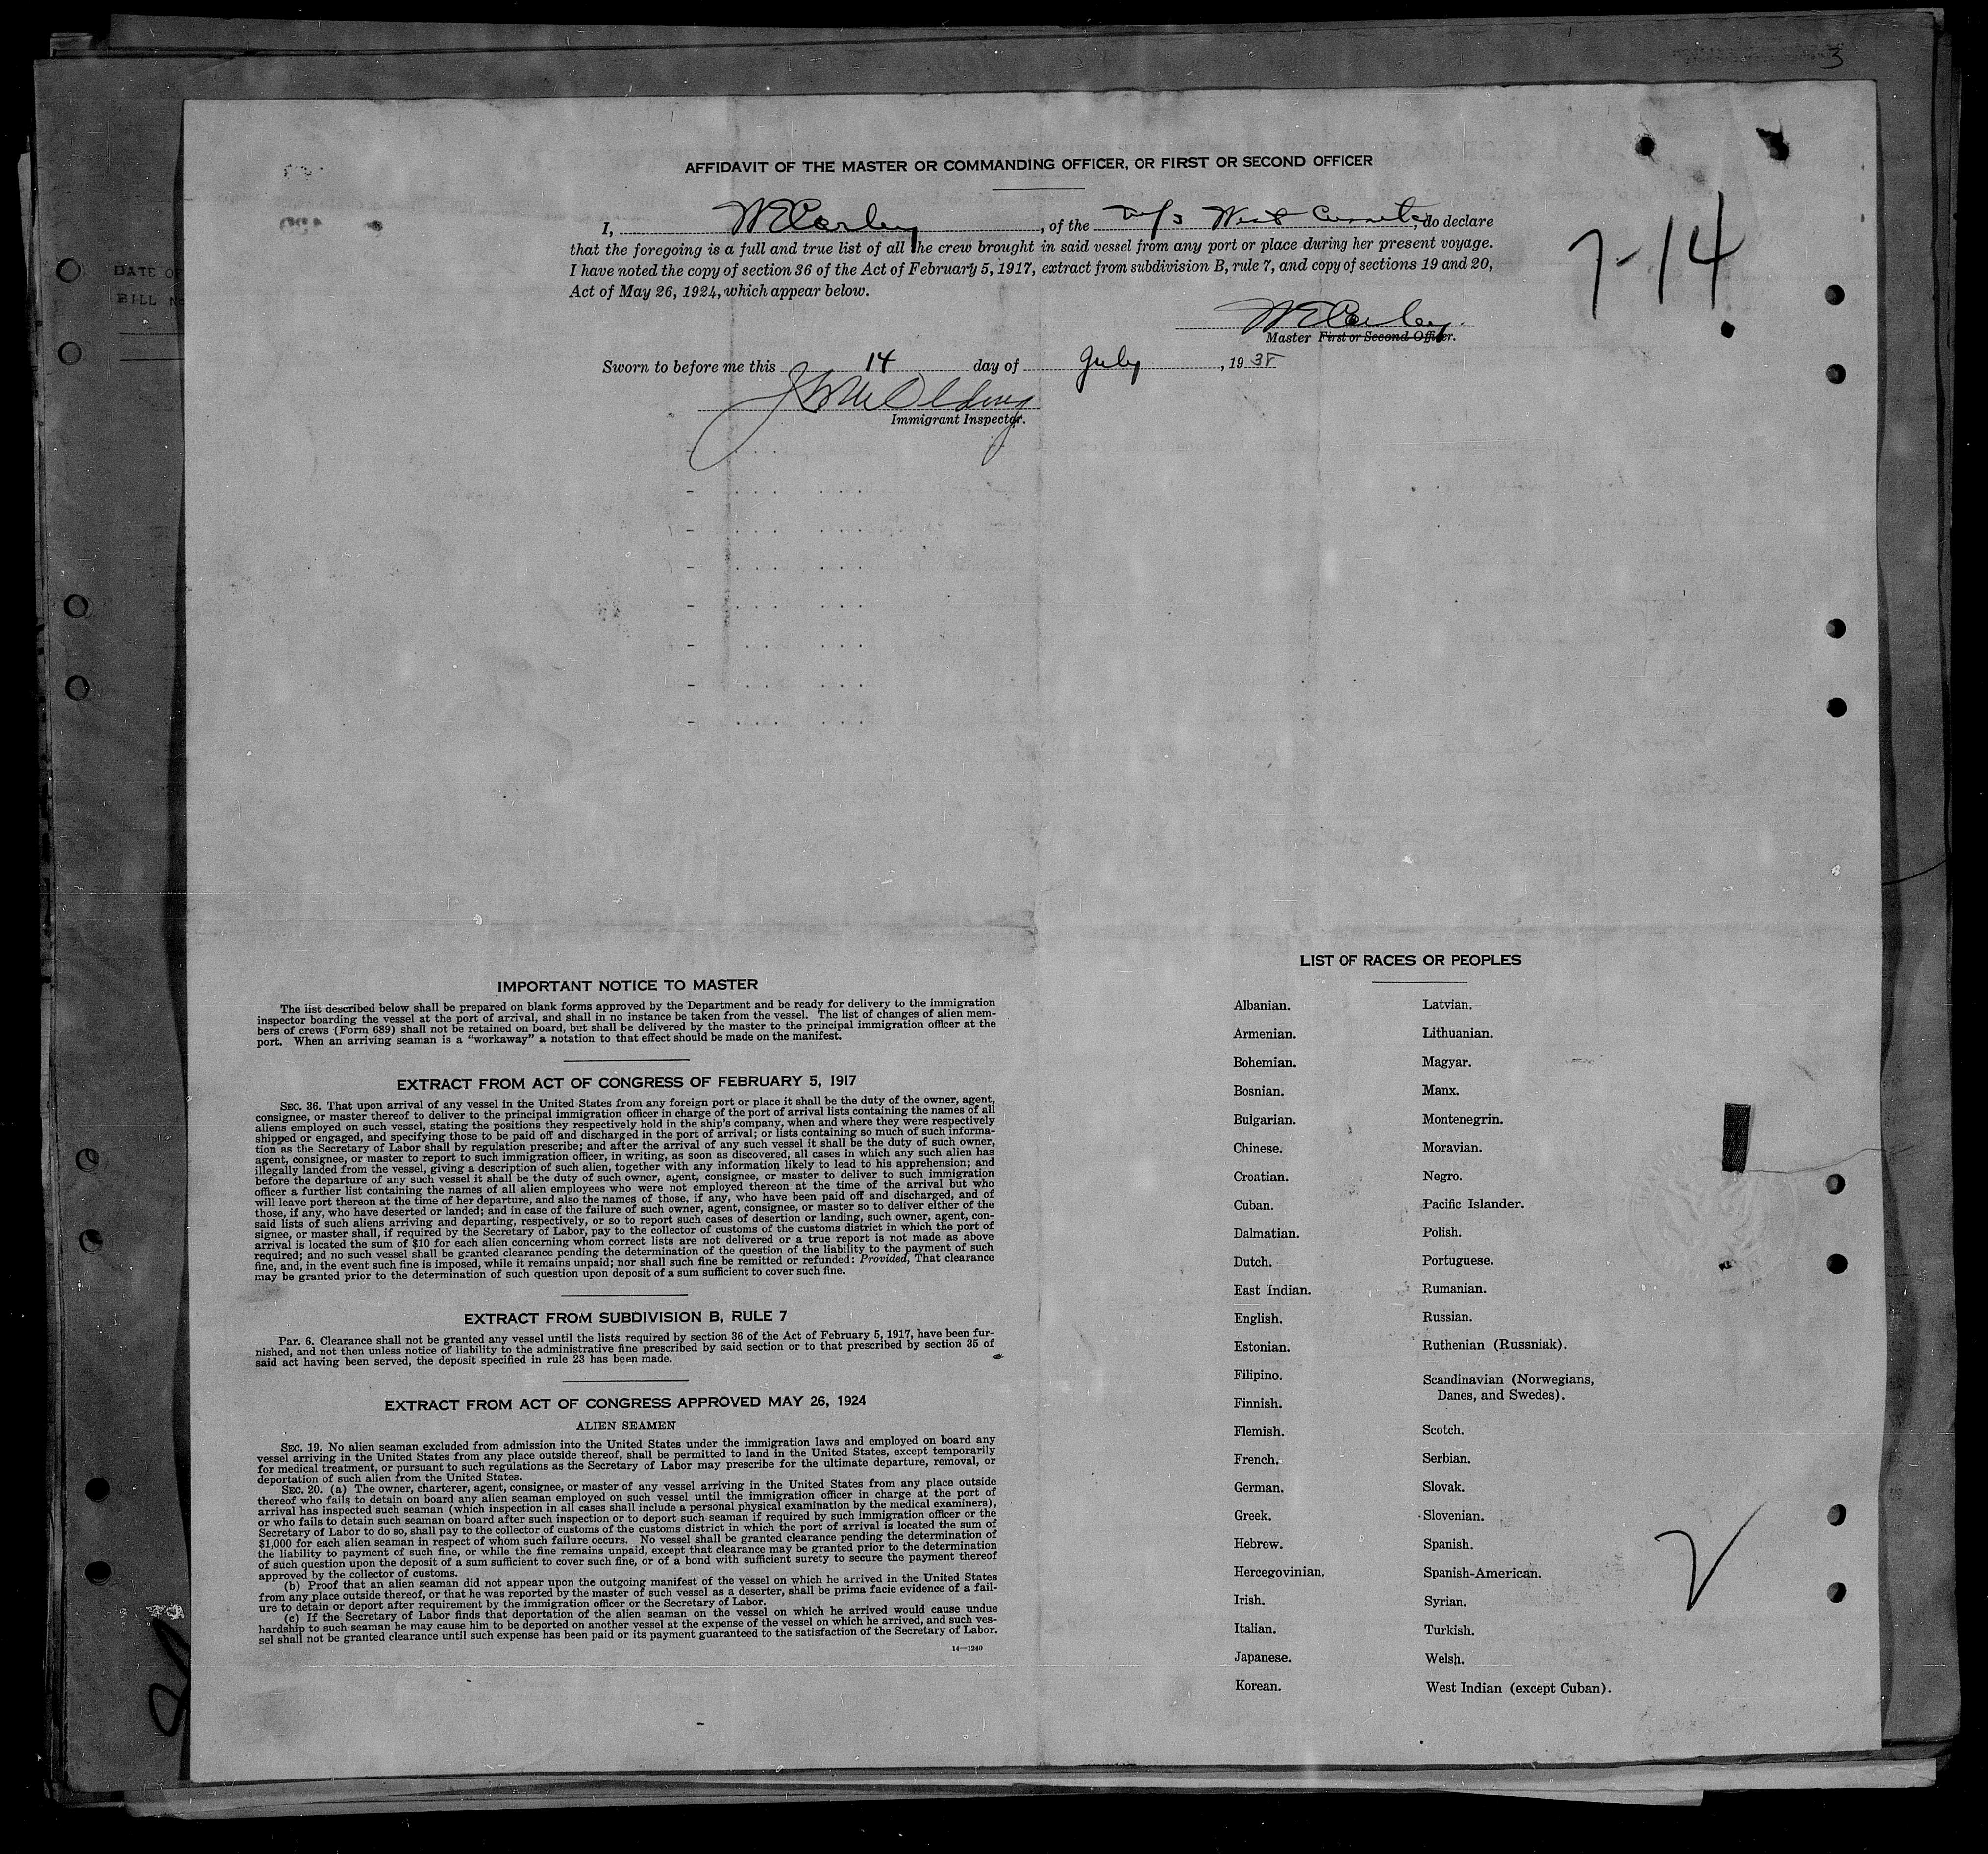 3
DATE OF
BILL No
AFFIDAVIT OF THE MASTER OR COMMANDING OFFICER, OR FIRST OR SECOND OFFICER
I, W E Corley, of the M/S West , do declare
that the foregoing is a full and true list of all the crew brought in said vessel from any port or place during her present voyage.
I have noted the copy of section 36 of the Act of February 5, 1917, extract from subdivision B, rule 7, and copy of sections 19 and 20,
Act of May 26, 1924, which appear below.
7-14
W E Corley
Master First or Second Officer.
Sworn to before me this 14 day of July, 1938
Immigrant Inspector.
IMPORTANT NOTICE TO MASTER
The list described below shall be prepared on blank forms approved by the Department and be ready for delivery to the immigration
inspector boarding the vessel at the port of arrival, and shall in no instance be taken from the vessel. The list of changes of alien mem-
bers of crews (Form 689) shall not be retained on board, but shall be delivered by the master to the principal immigration officer at the
port. When an arriving seaman is a "workaway" a notation to that effect should be made on the manifest.
EXTRACT FROM ACT OF CONGRESS OF FEBRUARY 5, 1917
SEC. 36. That upon arrival of any vessel in the United States from any foreign port or place it shall be the duty of the owner, agent,
consignee, or master thereof to deliver to the principal immigration officer in charge of the port of arrival lists containing the names of all
aliens employed on such vessel, stating the positions they respectively hold in the ship's company, when and where they were respectively
shipped or engaged, and specifying those to be paid off and discharged in the port of arrival; or lists containing so much of such informa-
tion as the Secretary of Labor shall by regulation prescribe; and after the arrival of any such vessel it shall be the duty of such owner,
agent, consignee, or master to report to such immigration officer, in writing, as soon as discovered, all cases in which any such alien has
illegally landed from the vessel, giving a description of such alien, together with any information likely to lead to his apprehension; and
before the departure of any such vessel it shall be the duty of such owner, agent, consignee, or master to deliver to such immigration
officer a further list containing the names of all alien employees who were not employed thereon at the time of the arrival but who
will leave port thereon at the time of her departure, and also the names of those, if any, who have been paid off and discharged, and of
those, if any, who have deserted or landed; and in case of the failure of such owner, agent, consignee, or master so to deliver either of the
said lists of such aliens arriving and departing, respectively, or so to report such cases of desertion or landing, such owner, agent, con-
signee, or master shall, if required by the Secretary of Labor, pay to the collector of customs of the customs district in which the port of
arrival is located the sum of $10 for each alien concerning whom correct lists are not delivered or a true report is not made as above
required; and no such vessel shall be granted clearance pending the determination of the question of the liability to the payment of such
fine, and, in the event such fine is imposed, while it remains unpaid; nor shall such fine be remitted or refunded: Provided, That clearance
may be granted prior to the determination of such question upon deposit of a sum sufficient to cover such fine.
EXTRACT FROM SUBDIVISION B, RULE 7
Par. 6. Clearance shall not be granted any vessel until the lists required by section 36 of the Act of February 5, 1917, have been fur-
nished, and not then unless notice of liability to the administrative fine prescribed by said section or to that prescribed by section 35 of
said act having been served, the deposit specified in rule 23 has been made.
EXTRACT FROM ACT OF CONGRESS APPROVED MAY 26, 1924
ALIEN SEAMEN
SEC. 19. No alien seaman excluded from admission into the United States under the immigration laws and employed on board any
vessel arriving in the United States from any place outside thereof, shall be permitted to land in the United States, except temporarily
for medical treatment, or pursuant to such regulations as the Secretary of Labor may prescribe for the ultimate departure, removal, or
deportation of such alien from the United States.
SEC. 20. (a) The owner, charterer, agent, consignee, or master of any vessel arriving in the United States from any place outside
thereof who fails to detain on board any alien seaman employed on such vessel until the immigration officer in charge at the port of
arrival has inspected such seaman (which inspection in all cases shall include a personal physical examination by the medical examiners),
or who fails to detain such seaman on board after such inspection or to deport such seaman if required by such immigration officer or the
Secretary of Labor to do so, shall pay to the collector of customs of the customs district in which the port of arrival is located the sum of
$1,000 for each alien seaman in respect of whom such failure occurs. No vessel shall be granted clearance pending the determination of
the liability to payment of such fine, or while the fine remains unpaid, except that clearance may be granted prior to the determination
of such question upon the deposit of a sum sufficient to cover such fine, or of a bond with sufficient surety to secure the payment thereof
approved by the collector of customs.
(b) Proof that an alien seaman did not appear upon the outgoing manifest of the vessel on which he arrived in the United States
from any place outside thereof, or that he was reported by the master of such vessel as a deserter, shall be prima facie evidence of a fail-
ure to detain or deport after requirement by the immigration officer or the Secretary of Labor.
(c) If the Secretary of Labor finds that deportation of the alien seaman on the vessel on which he arrived would cause undue
hardship to such seaman he may cause him to be deported on another vessel at the expense of the vessel on which he arrived, and such ves-
sel shall not be granted clearance until such expense has been paid or its payment guaranteed to the satisfaction of the Secretary of Labor.
14—1240
LIST OF RACES OR PEOPLES
Albanian.
Armenian.
Bohemian.
Bosnian.
Bulgarian.
Chinese.
Croatian.
Cuban.
Dalmatian.
Dutch.
East Indian.
English.
Estonian.
Filipino.
Finnish.
Flemish.
French.
German.
Greek.
Hebrew.
Hercegovinian.
Irish.
Italian.
Japanese.
Korean.
Latvian.
Lithuanian.
Magyar.
Manx.
Montenegrin.
Moravian.
Negro.
Pacific Islander.
Polish.
Portuguese.
Rumanian.
Russian.
Ruthenian (Russniak).
Scandinavian (Norwegians,
Danes, and Swedes).
Scotch.
Serbian.
Slovak.
Slovenian.
Spanish.
Spanish-American.
Syrian.
Turkish.
Welsh.
West Indian (except Cuban).